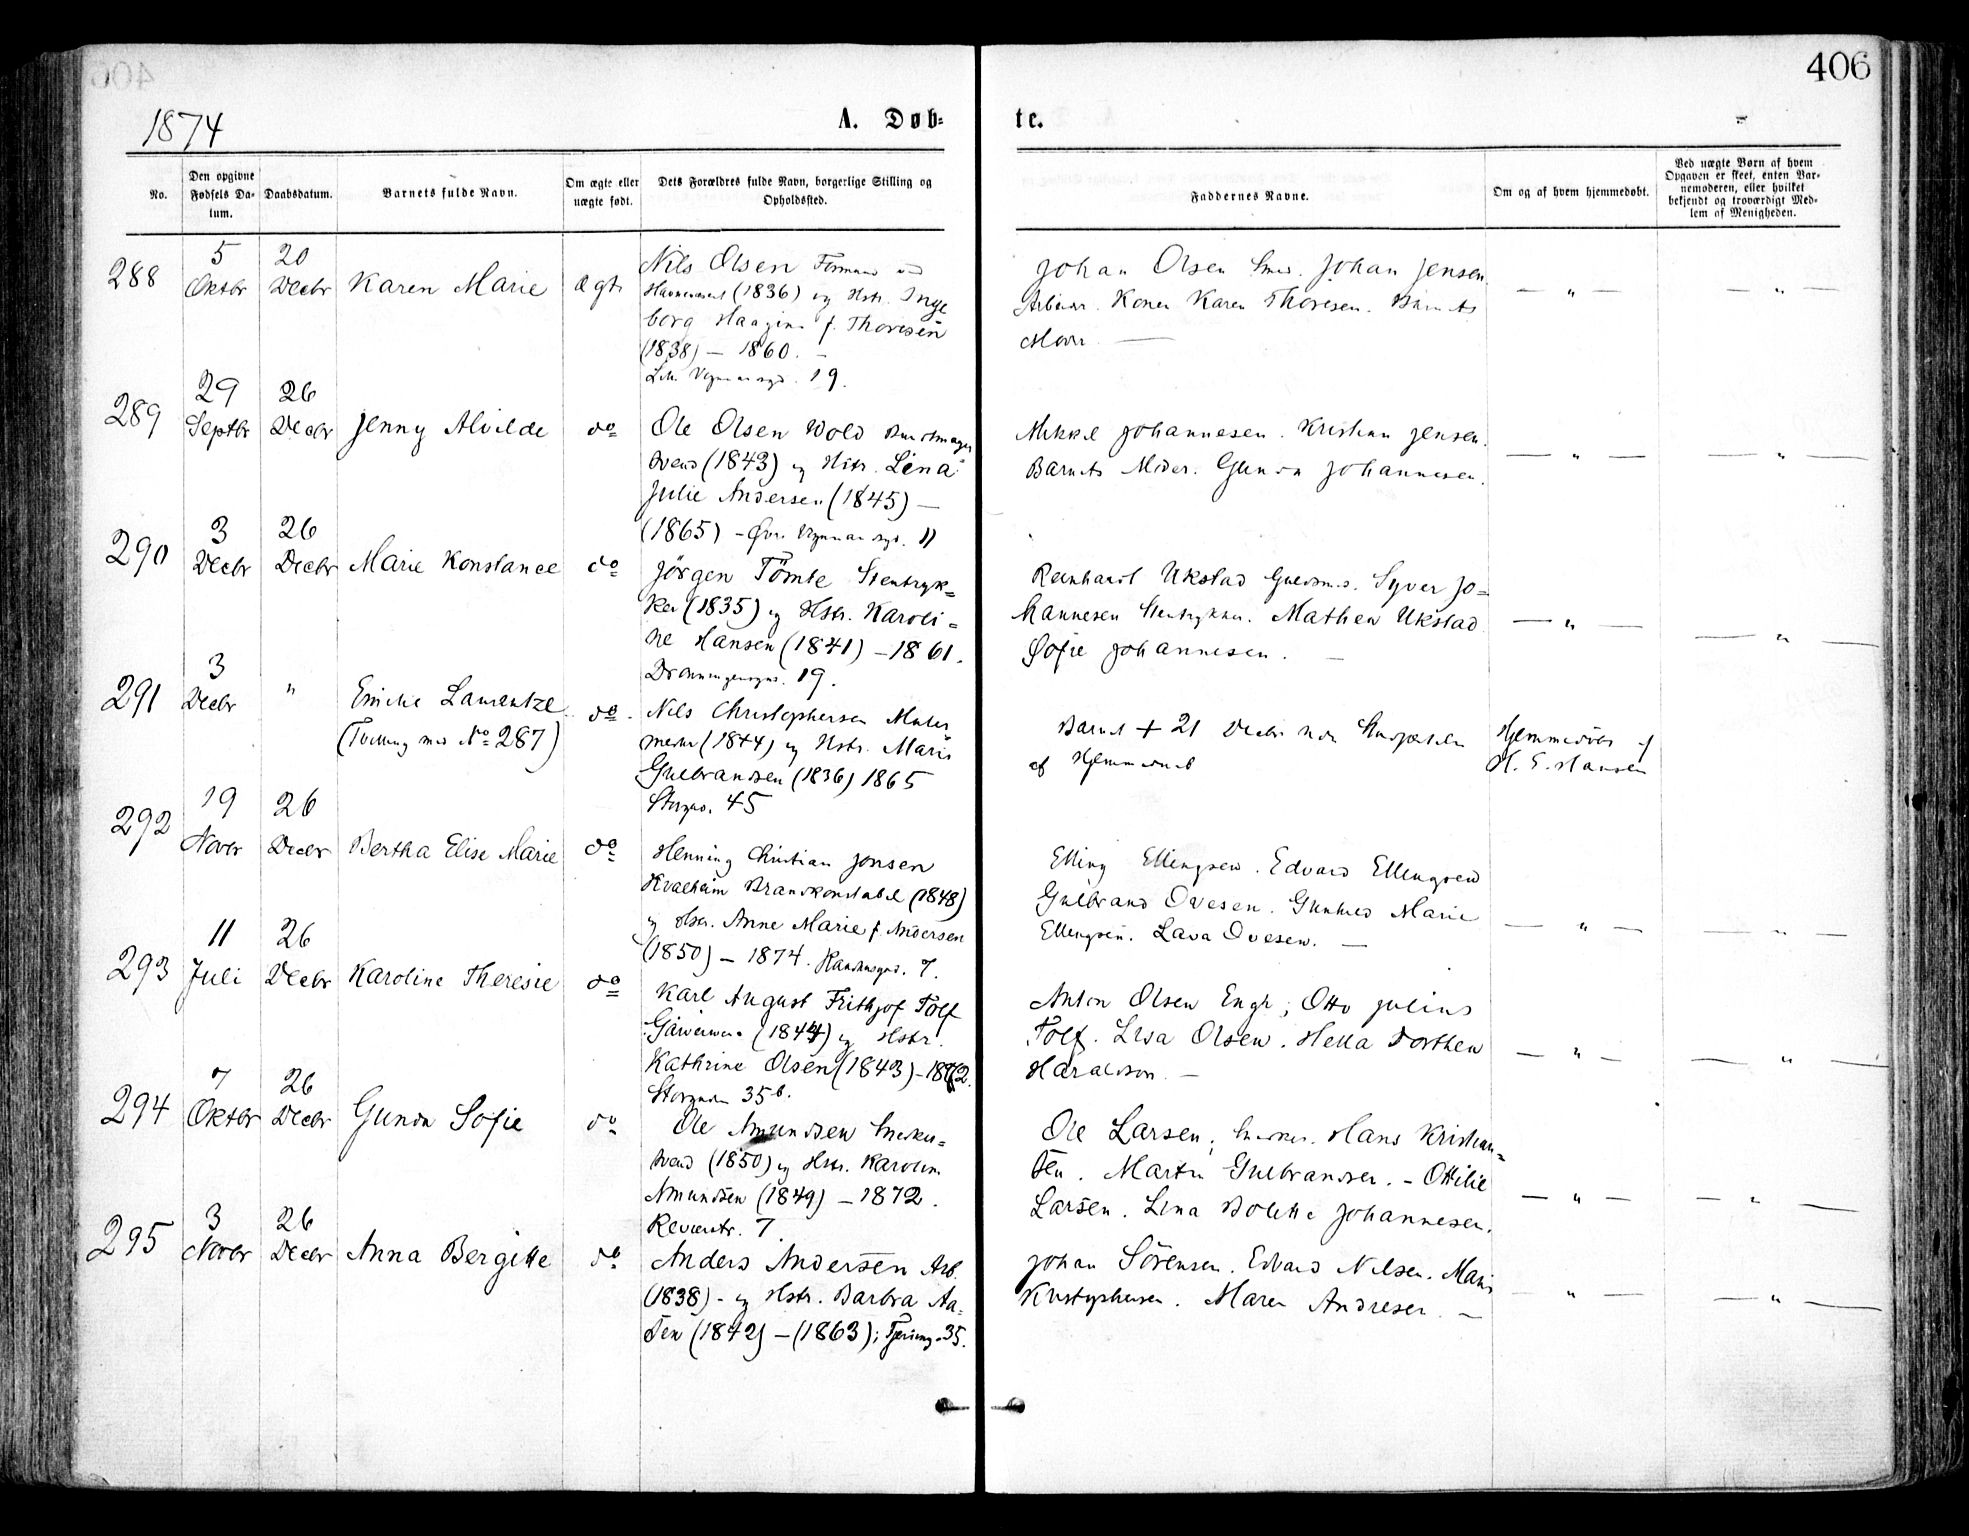 406
1874
A. Døb-
te.
No.
Den opgivne Fødsels Da-
tum.
Daabsdatum.
Barnets fulde Navn.
Om ægte eller
uægte født.
Dets Forældres fulde Navn, borgerlige Stilling og
Opholdssted.
Faddernes Navne.
Om og af hvem hjemmedøbt.
Ved uægte Børn af hvem
Opgaven er skeet, enten Bar-
nemoderen, eller hvilket
bekjendt og troværdigt Med-
lem af Menigheden.
288
5 Oktbr
20 Decbr
Karen Marie
Nils Olsen Formand ved
(1836) og Hstr. Inge
borg Haagine f. Thoresen
(1838) — 1860. —
19.
Johan Olsen Smed. Johan Jensen
Arbeider. Konen Karen Thoresen. Barnets
Moder. —
— " —
— " —
289
29 Septbr
26 Decbr
Jenny Alvilde
do
Ole Olsen Wold
svend (1843) og Hstr. Lina
Julie Andersen (1845) —
(1865) - Øvre 11
Mikkel Johannesen. Kristian Jensen.
Barnets Moder. Gunda Johannesen.
— " —
— " —
290
3 Decbr
26 Decbr
Marie Konstance
do
Jörgen Tömte Stentryk=
ker (1835) og Hstr. Karoli=
ne Hansen (1841) — 1861.
Dronningensgd. 19.
Reinhardt Ukstad Guldsm. Syver Jo=
hannesen Stentrykker. Mathea Ukstad
Sofie Johannesen. —
— " —
— " —
291
3 Decbr
"
Emilie Laurantze
(Tvilling med No 287)
do
Nils Christophersen Maler
mester (1844) og Hstr. Marie
Gulbrandsen (1836) 1865
Storgd. 45
Barnet + 21 Decbr
af Hjemmedaab
Hjemmedøbt af
H. E. Hansen
292
19 Novbr
26 Decbr
Bertha Elise Marie
do
Henning Christian Jonsen
Kvalheim Brandkonstabel (1848)
og Hstr. Anne Marie f. Andersen
(1850) — 1874. 7.
Elling Ellingsen. Edvard Ellingsen
Gulbrand Ovesen. Gunhild Marie
Ellingsen. Lava Ovesen. —
— " —
— " —
293
11 Juli
26 Decbr
Karoline Theresie
do
Karl August Frithjof Tolf
(1844) og Hstr.
Kathrine Olsen (1843) — 1872.
Storgaden 35b.
Anton Olsen Engh; Otto Julius
Tolf. Lisa Olsen. Hella Dorthea
Haraldson. —
— " —
— " —
294
7 Oktbr
26 Decbr
Gunda Sofie
do
Ole Amundsen Snedker=
svend (1850) og Hstr. Karoline
Amundsen (1849) — 1872.
7.
Ole Larsen, Snedker. Hans Kristian=
sen. Martin Gulbrandsen. — Ottilie
Larsen. Lina Bolette Johannesen.
— " —
— " —
295
3 Novbr
26 Decbr
Anna Bergitte
do
Anders Andersen Arb.
(1838) - og Hstr. Barbra Aa=
sen (1842) — (1863); 35.
Johan Sörensen. Edvard Nilsen. Marie
Kristophersen. Maren Andresen. —
"
— " —